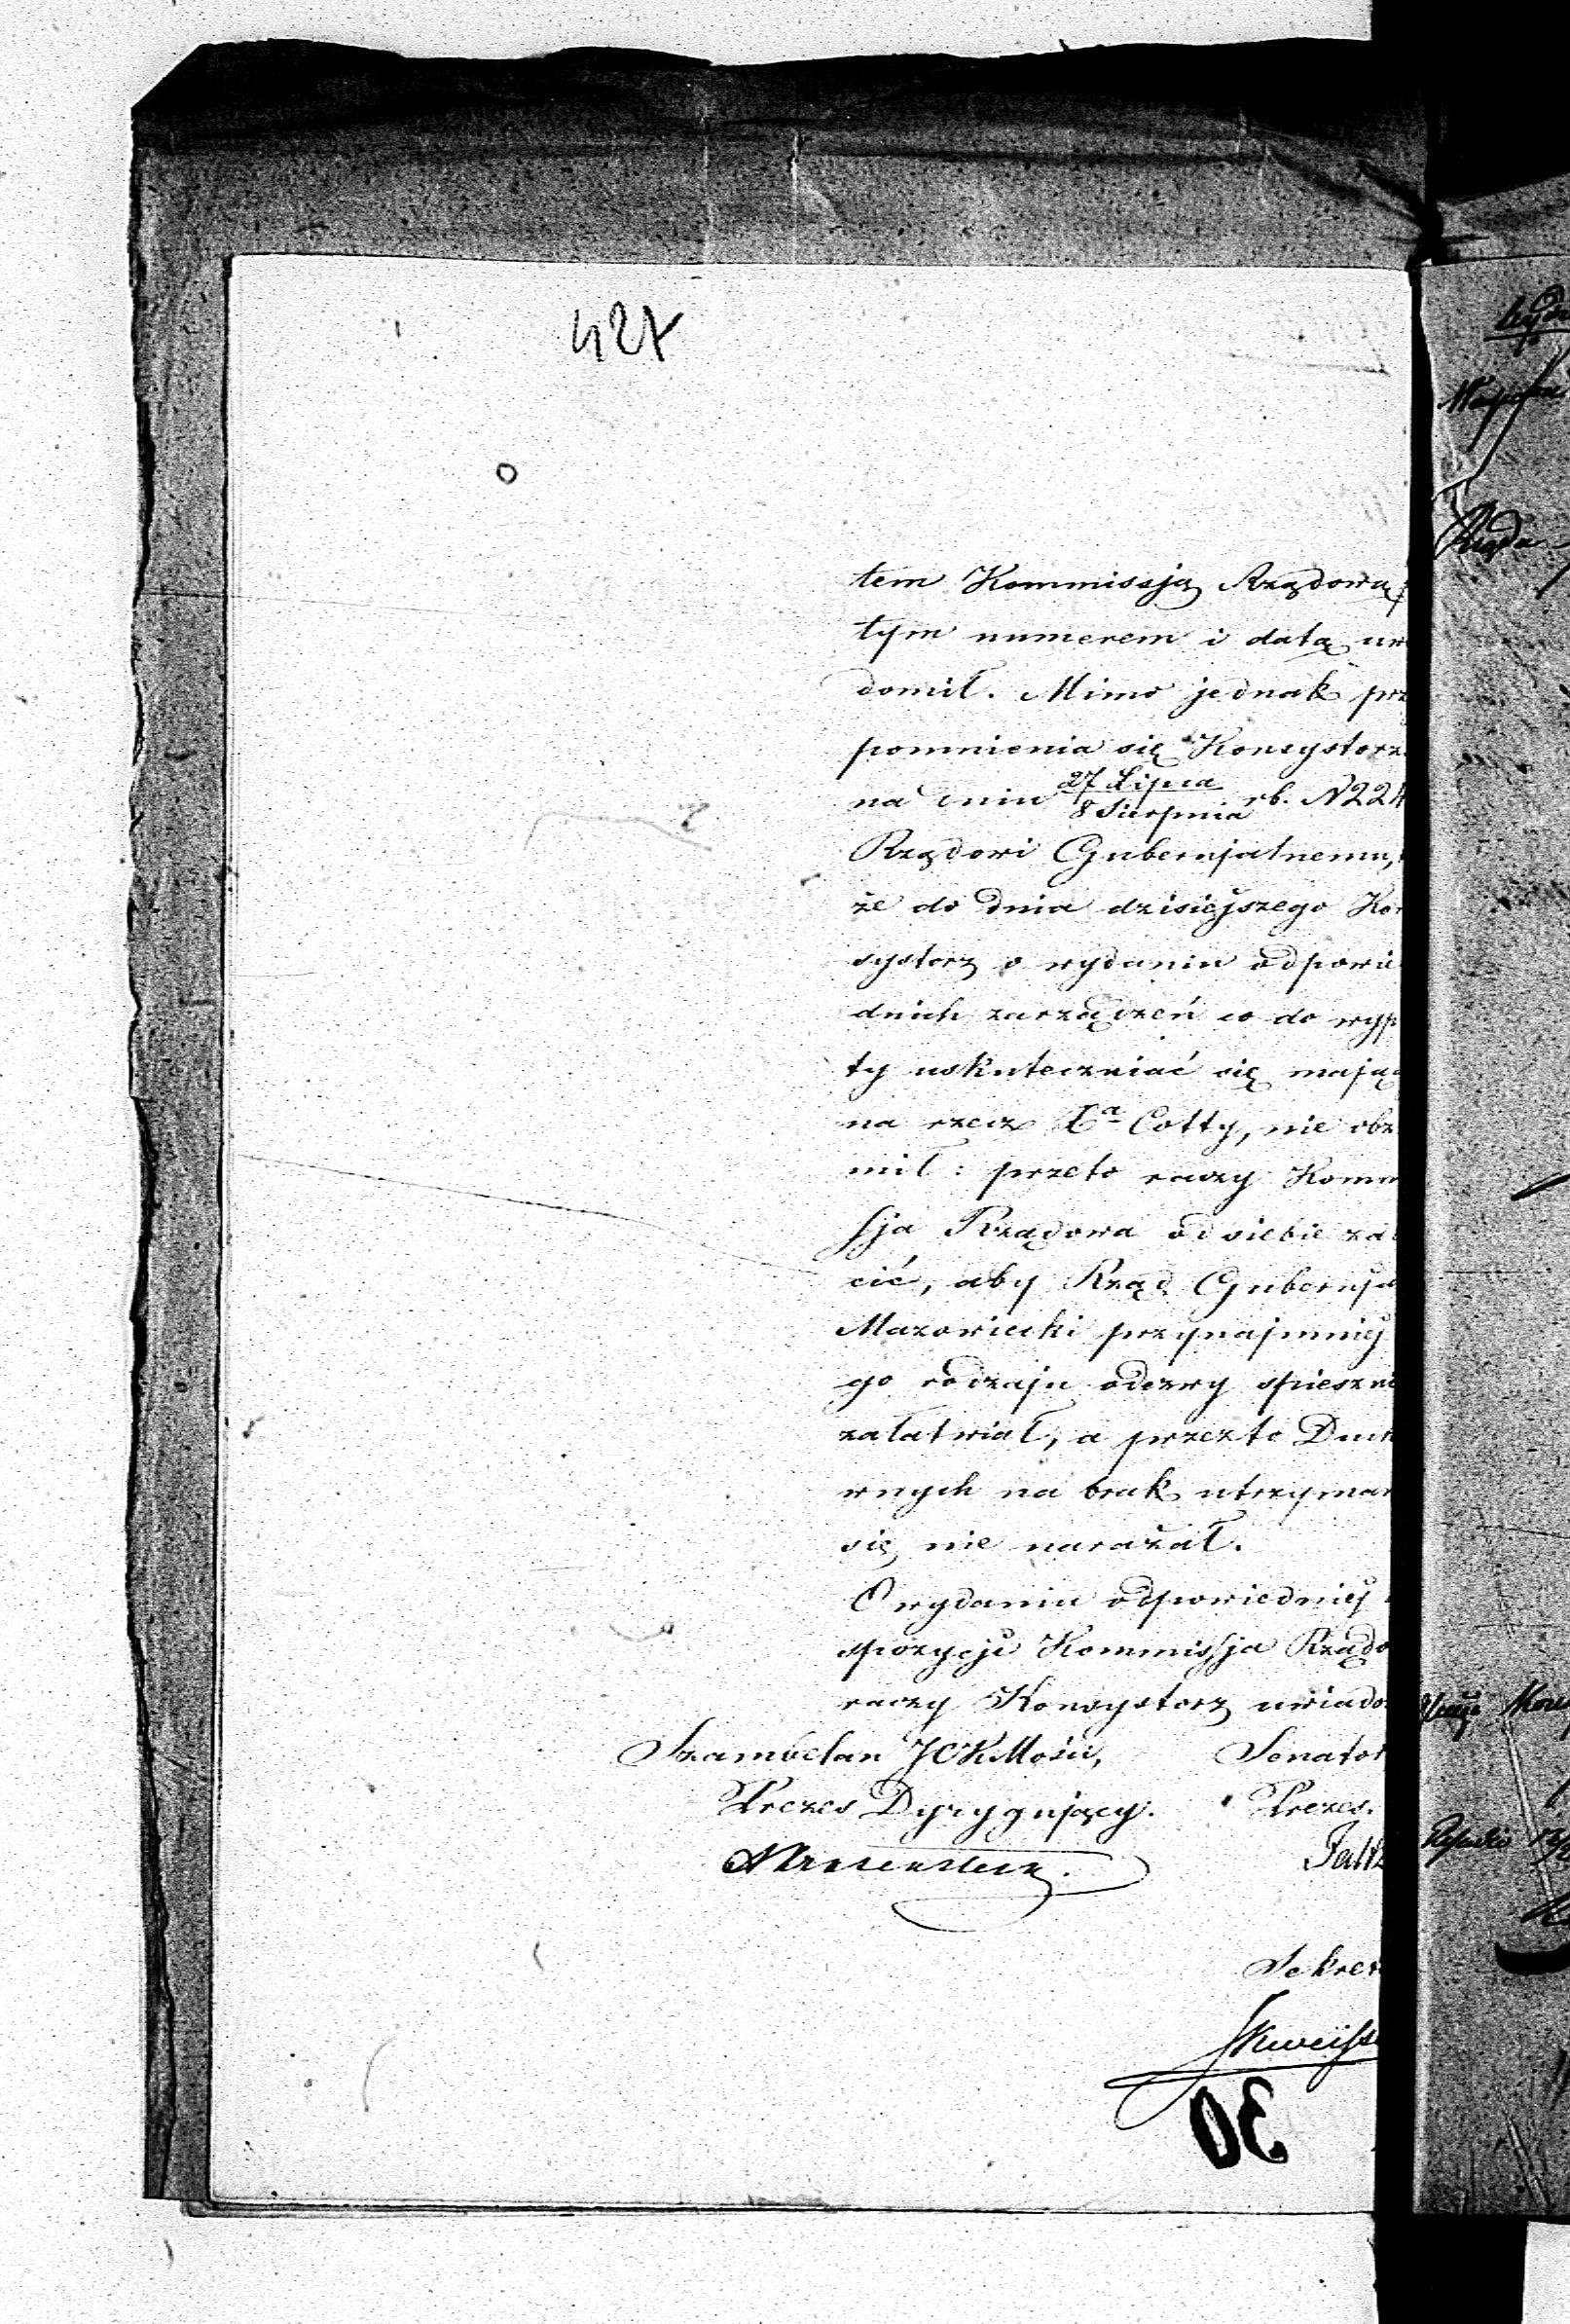 427
tem Kommissją Rządową
tym numerem i datą uw
domił. Mimo jednak prz
pomnienia się Konsystorz
na dniu 27 Lipca / 8 Sierpnia rb. N 224
Rządowi Gubernjalnemu,
że do dnia dzisiejszego Kon
systorz o wydaniu odpowie
dnich zarządzeń co do wyp
ty uskuteczniać się mając
na rzecz Xa Cotty, nie obz
mił: przeto raczy Komm
ssja Rządowa od siebie zal
cić, aby Rząd Gubernja
Mazowiecki przynajmniéj
go rodzaju odezwy spieszni
załatwiał, a przezto Duch
wnych na brak utrzyman
się nie narażał.
O wydaniu odpowiedniéj
spozycji Kommissja Rządo
raczy Konsystorz uwiado
Szambelan JCKMości, Senator
Prezes Dyrygujący. Prezes.
Sekret
30